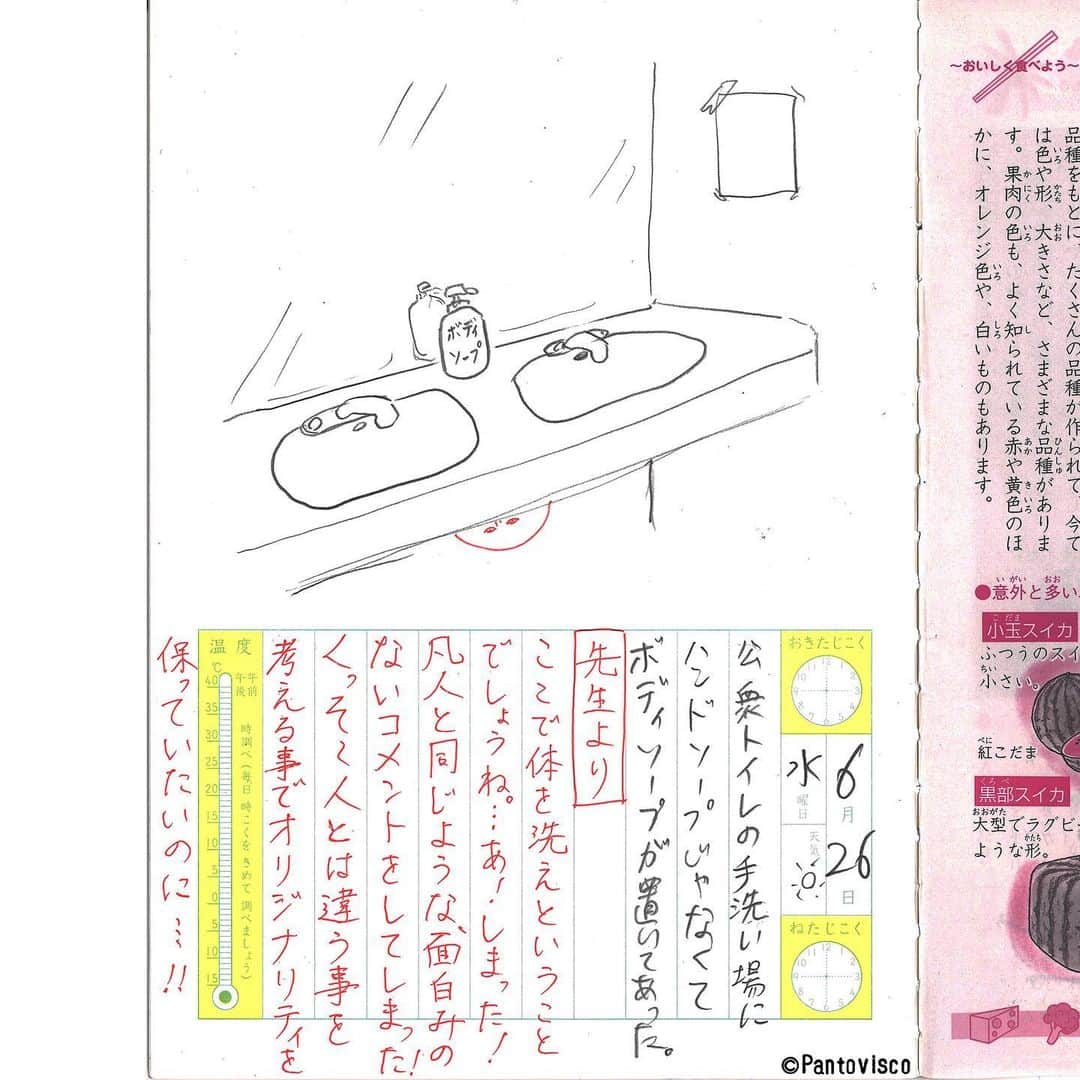 ボディ
ソープ
おきたじこく
6月
26日
水曜日
天気
ねたじこく
公衆トイレの手洗い場に
ハンドソープじゃなくて
ボディソープが置いてあった。
先生より
ここで体を洗えということ
でしょうね。…あ！しまった！
凡人と同じような、面白みの
ないコメントをしてしまった！
くっそ〜人とは違う事を
考える事でオリジナリティを
保っていたいのに…!!
温度
℃
午前
午後
時調べ（毎日 時こくを きめて 調べましょう）
40
35
30
25
20
15
10
5
0
5
10
15
～おいしく食べよう～
品種をもとに、たくさんの品種が作られて、今で
は色や形、大きさなど、さまざまな品種がありま
す。果肉の色も、よく知られている赤や黄色のほ
かに、オレンジ色や、白いものもあります。
●意外と多い
小玉スイカ
ふつうのスイ
小さい。
紅こだま
黒部スイカ
大型でラグビ
ような形。
©Pantovisco